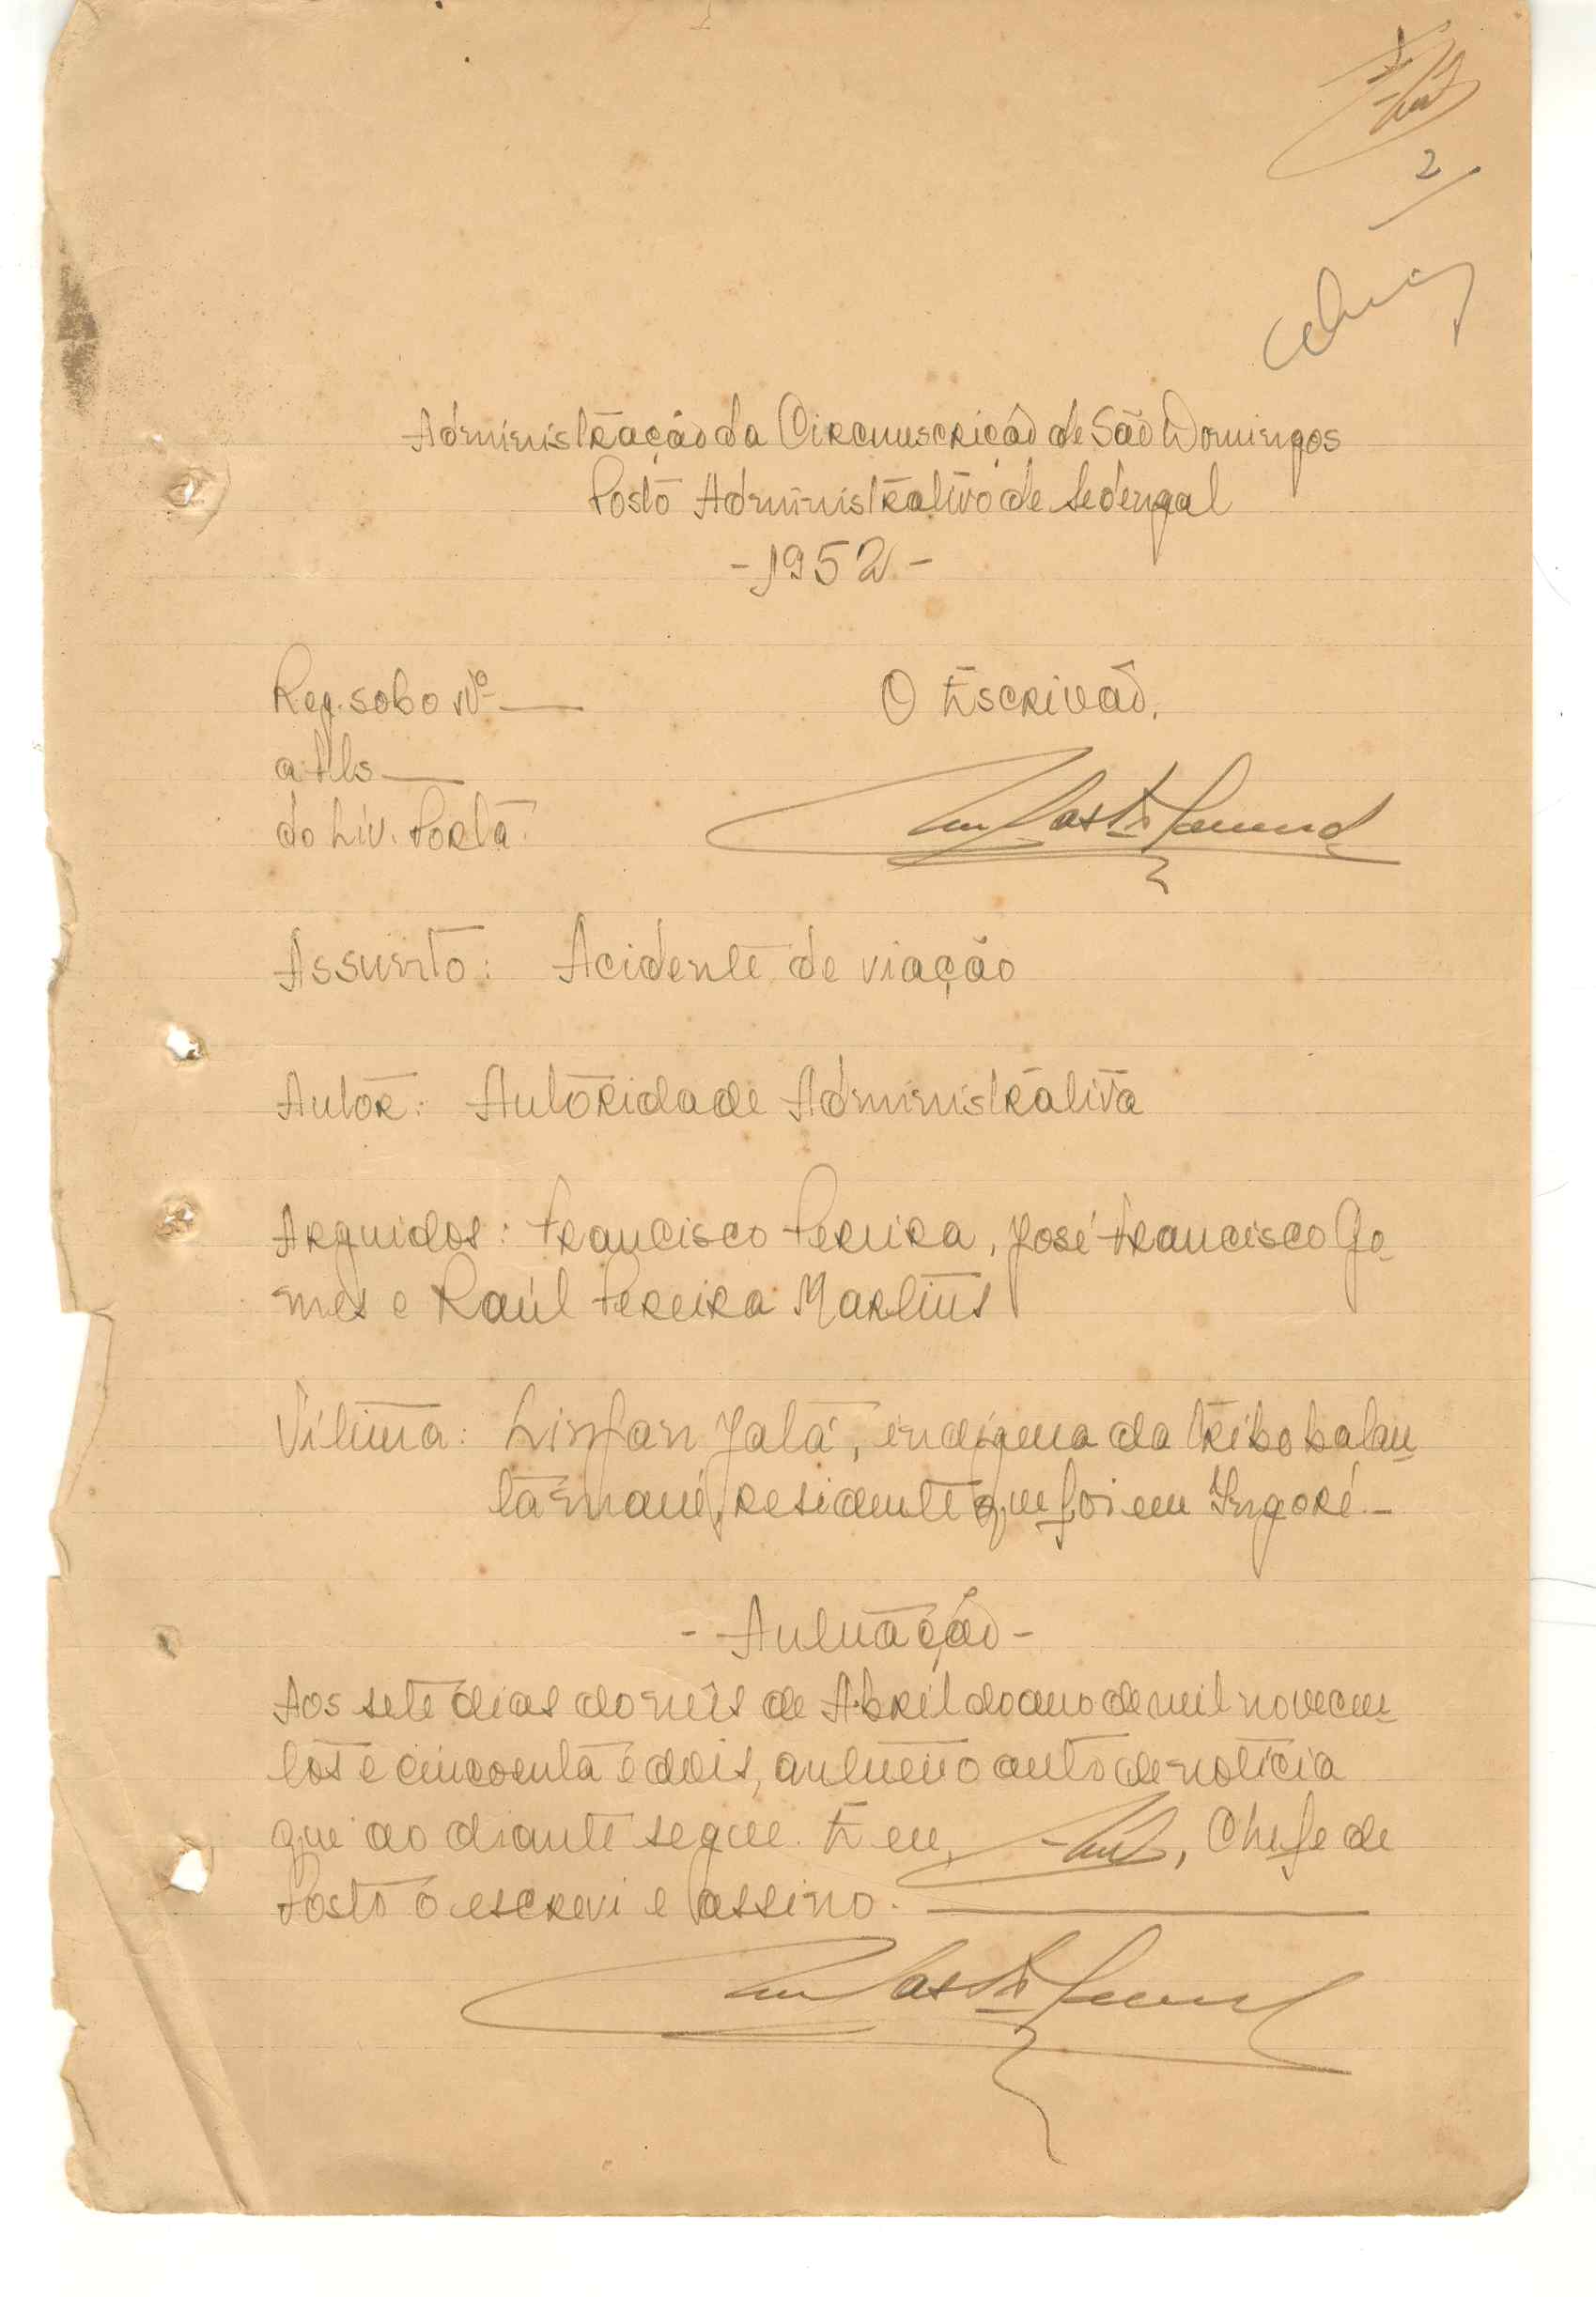 2
Administração da Circunscrição de São Domingos
Posto Administrativo de Sedengal
-1952-
Reg. sob o Nº
O Escrivão,
a fls
do Liv. Porta
Assunto: Acidente de viação
Autor: Autoridade Administrativa
Arguidos: Francisco Pereira, José Francisco Go-
mes e Raúl Pereira Martins
Vítima: Linfan Jatá, indígena da tribo balan-
ta mané, residente que foi em Ingoré-
- Autuação -
Aos sete dias do mês de Abril do ano de mil novecen-
tos e cincoenta e dois, autuei o auto de notícia
que ao diante segue. E eu, , Chefe de
Posto o escrevi e assino.